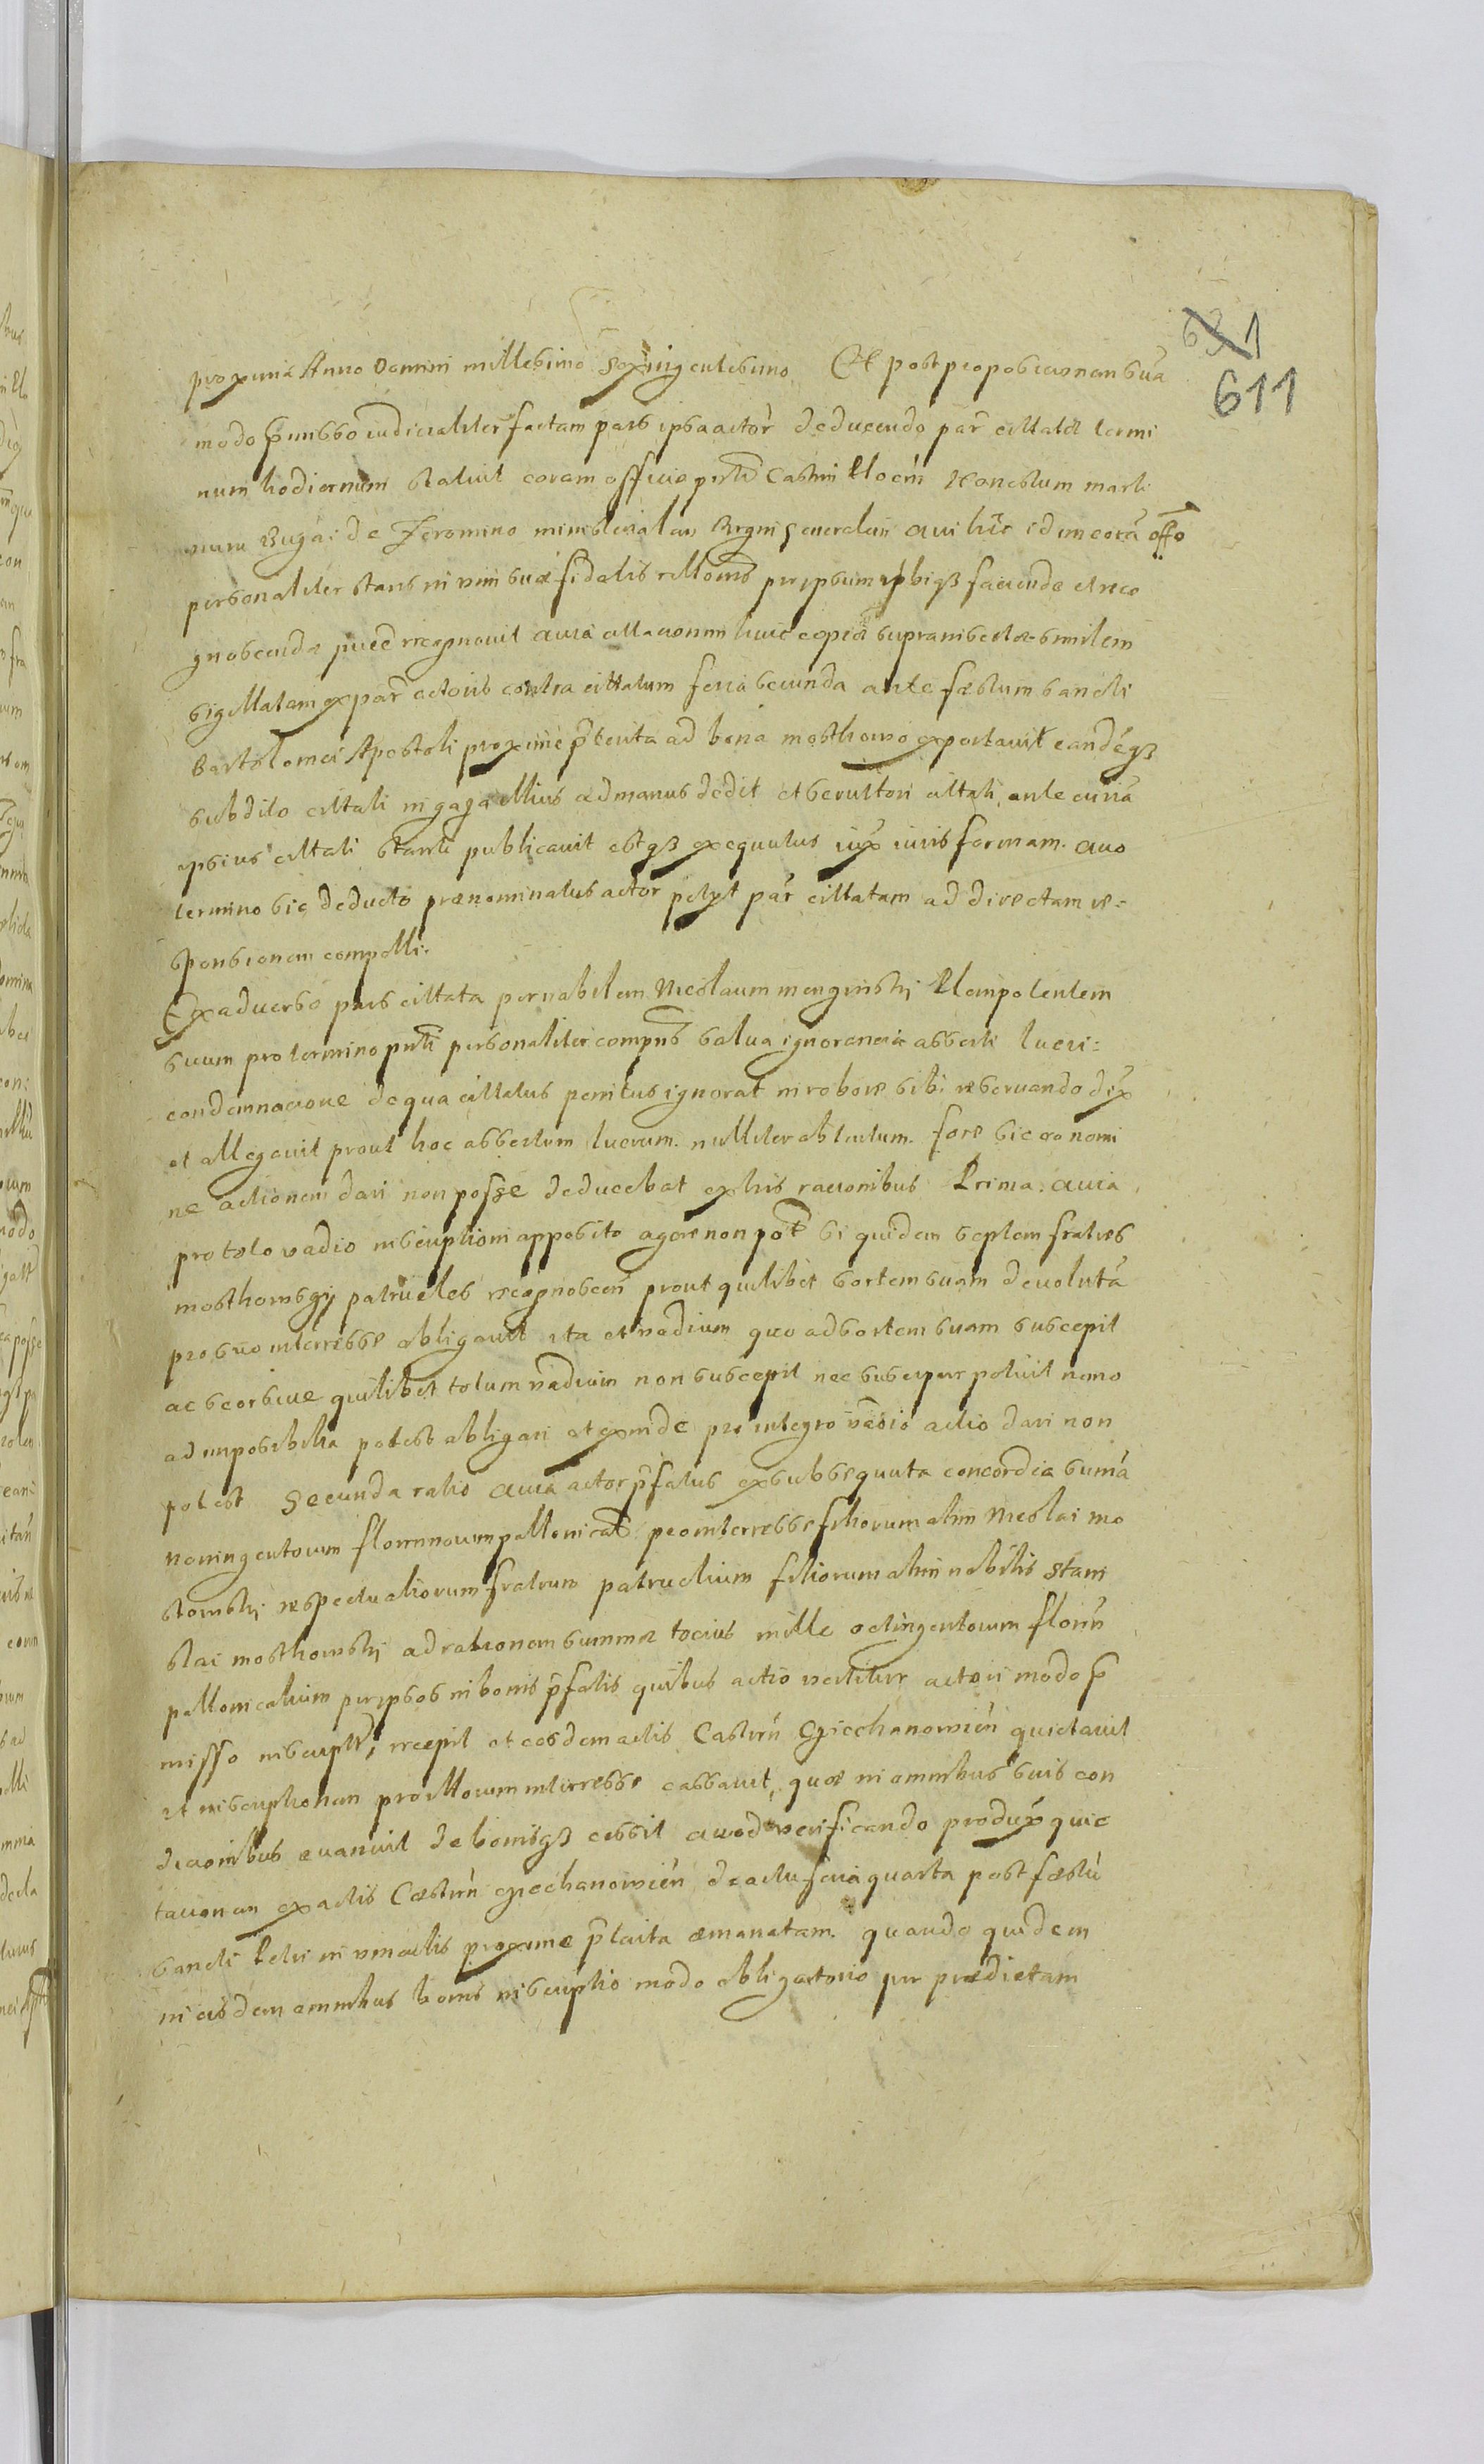 631
611
proxima Anno Domini millesimo Sexingentesimo. Et post propositionem sua
modo p̄misso iudicialiter factam pars ipsa actōr deducendo par̄ cittatæ termi
num hodiernum statuit coram officio pnti Castrñ Plocen̄ Honestum marti
num Bugai de Zeromino ministerialem Regni generalem qui hic idem corā offo
personaliter stans in vim suæ fidelis rellonis per ipsum ibigß faciende et reco
gnoscendæ recognouit quia cittationem huic copiæ supra insertæ similem
sigillatam ex par̄ actoris contra cittatum feria secunda ante fæstum sancti
Bartolomei Apostoli proxime p̄terita ad bona mosthowo exportauit eandēqß
subdito cittati in ad manus dedit et seruitori cittati ante curiā
ipsius cittati stanti publicauit estqß exequutus iux̄ iuris formam. quo
termino sic deducto prænominatus actor petyt pār cittatam ad directam re=
sponsionem compelli.
Ex aduerso pars cittata per nobilem Nicolaum Plenipotentem
suum pro termino pnti personaliter compns salua ignorancia asserti lucri=
condemnacione de qua cittatus penitus ignorat in robore sibi reseruando dix̄
et allegauit prout hoc assertum lucrum nulliter obtentum fore sic eo nomi
ne actionem dari non posse deducebat ex his racionibus Prima. quia
pro toto vadio inscriptioni apposito agere non pōt si quidem septem fratres
mosthowsczy patrueles recognoscen̄ prout quilibet sortem suam deuolutā
pro suo interresse obligauit ita et vadium quo ad sortem suam suscepit
ac seorsiue quilibet totum vadium non suscepit nec suscipere potuit nemo
ad impossibilia potest obligari et exinde pro integro vadio actio dari non
potest Secunda ratio quia actor p̄fatus ex subsequuta concordia sumā
noningentorum florennorum pollonical pro interresse filiorum olim Nicolai mo
stowskj respectu aliorum fratrum patruelium filiorum olim nobilis Stani
slai mosthowskj ad rationem summæ tocius mille octingentorum florñ
pollonicalium per ipsos in bonis p̄fatis quibus actio uertitur actori modo p̄
misso inscriptæ recepit et eosdem actis Castrñ Cziechanowien̄ quietauit
et inscriptionem pro illorum interresse cassauit, quæ in omnibus suis con
dicionibus euanuit de bonisqß cessit quod verificando produx̄ quie
tacionem ex actis Cæstrñ cziechanowien̄ de actu feria quarta post fæstū
sancti Petri in vinculis proxime p̄terita emanatam. quando quidem
in eisdem omnibus bonis inscriptio modo obligatorio per prædictam